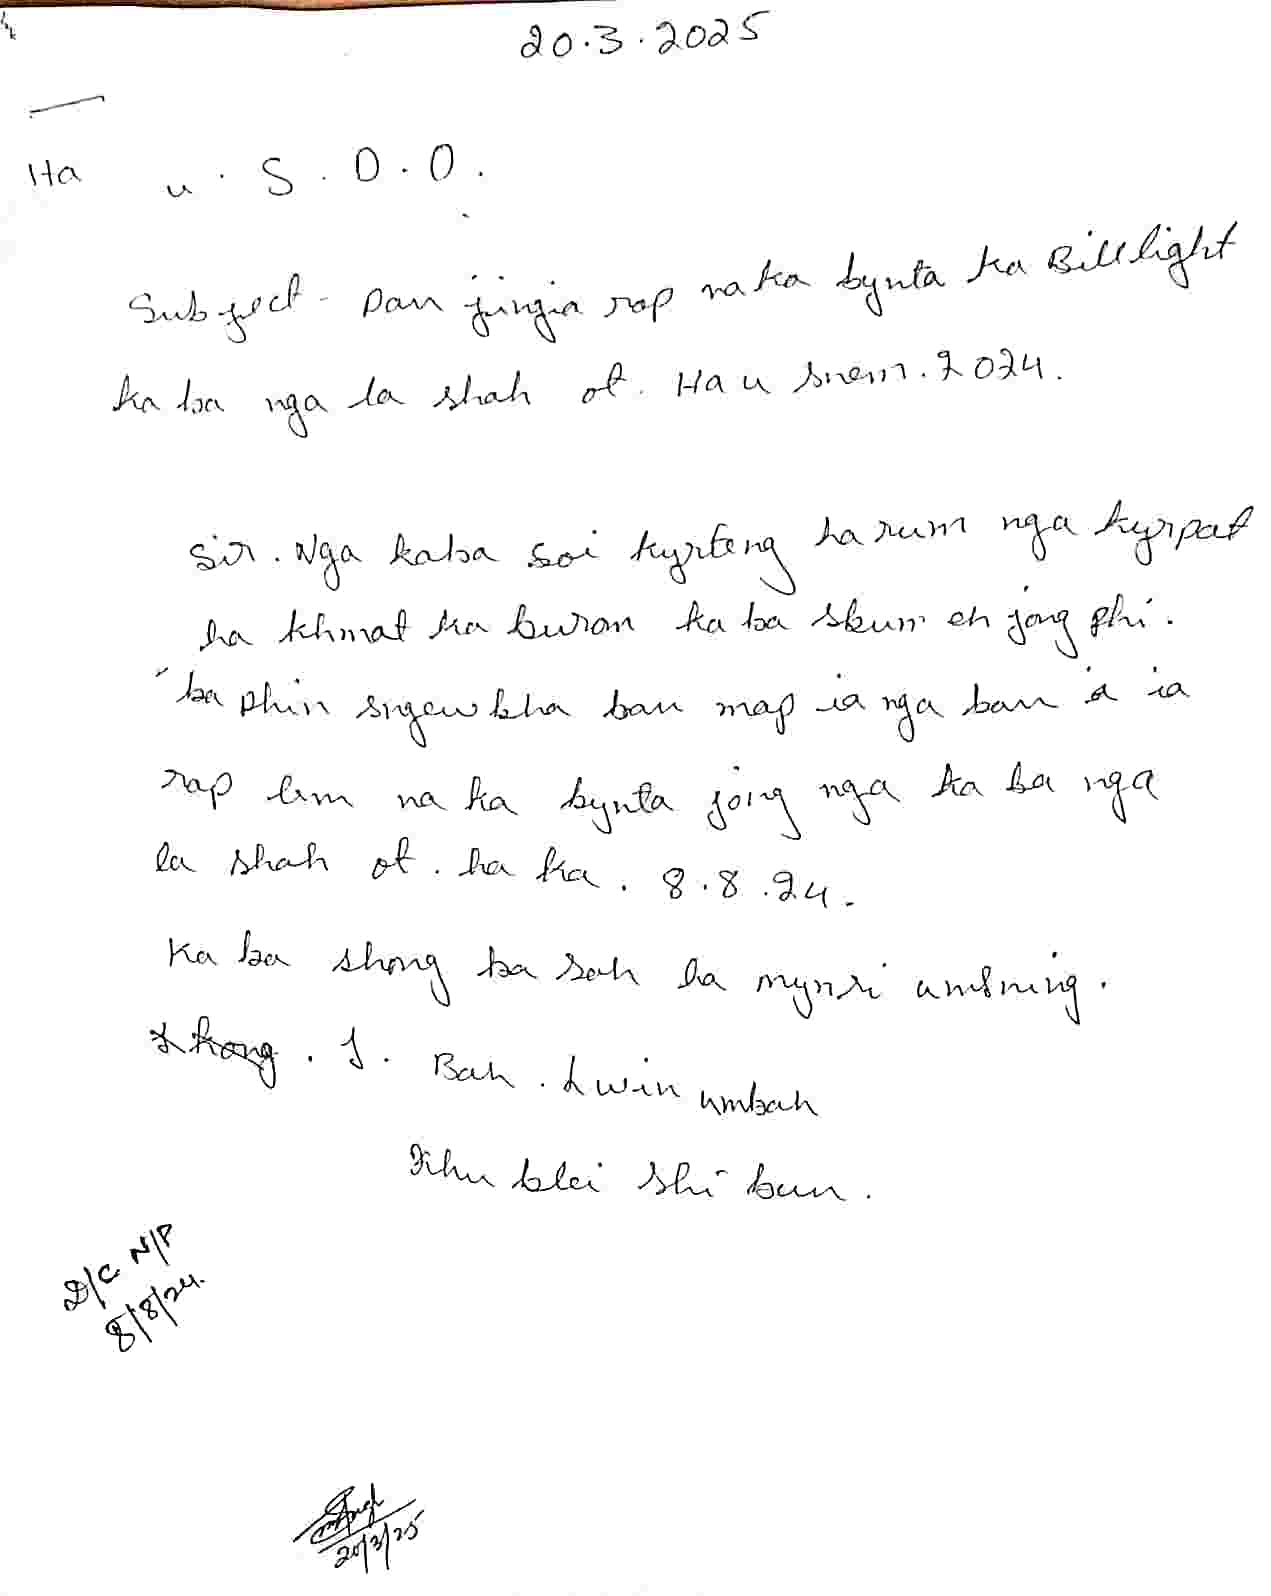 20.3.2025
Ha u. S.D.O.
Subject - Pan jingia rap na ka bynta ka Bill light
ka ba nga la shah ot. Ha u snem. 2024.
Sir. Nga kaba soi kyrteng harum nga kyrpad
ha khmat ka buron ka ba skum eh jong phi.
ba phin sngew bha ban map ia nga ban ia ia
rap lem na ka bynta jong nga ka ba nga
la shah ot. ha ka. 8.8.24.
Ka ba shong ba sah ha mynri umsning.
I. Bah. Lwin umbah
Khu blei shi bun.
D/C N/P
8/8/24.
20/3/25